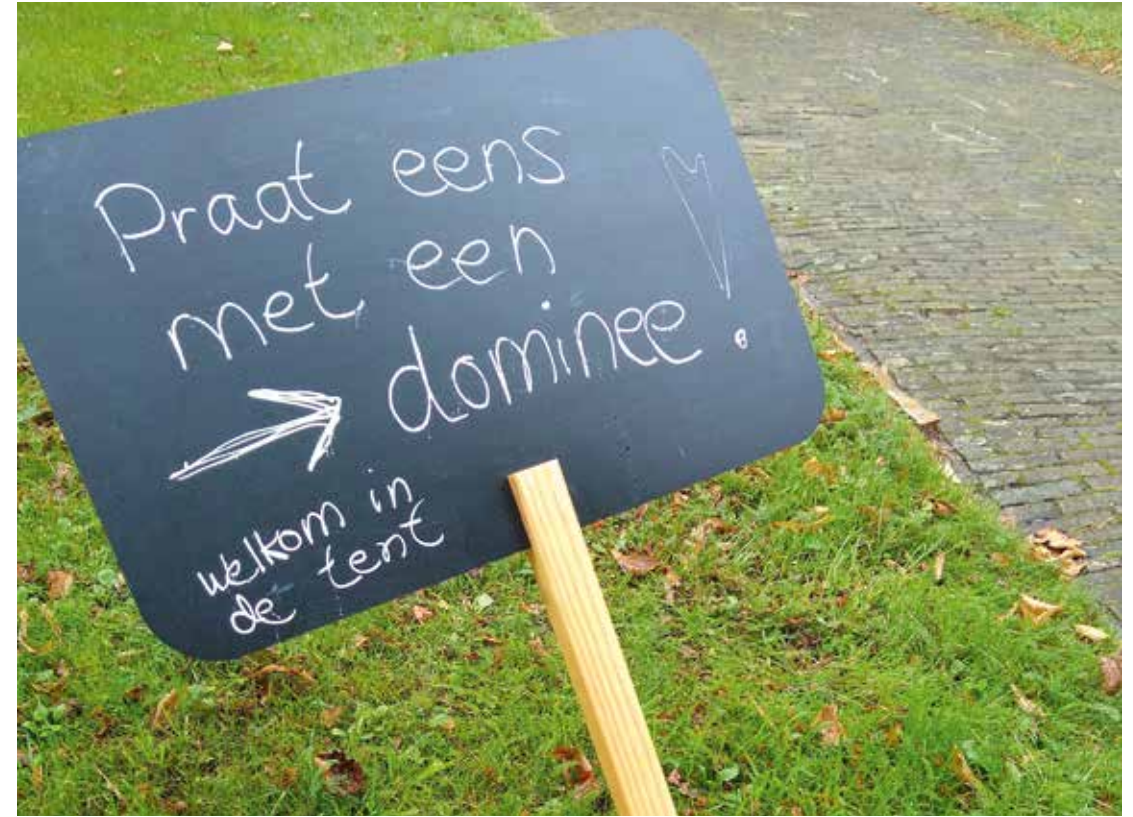 Praat eens
met een
→ dominee!
welkom in
de tent